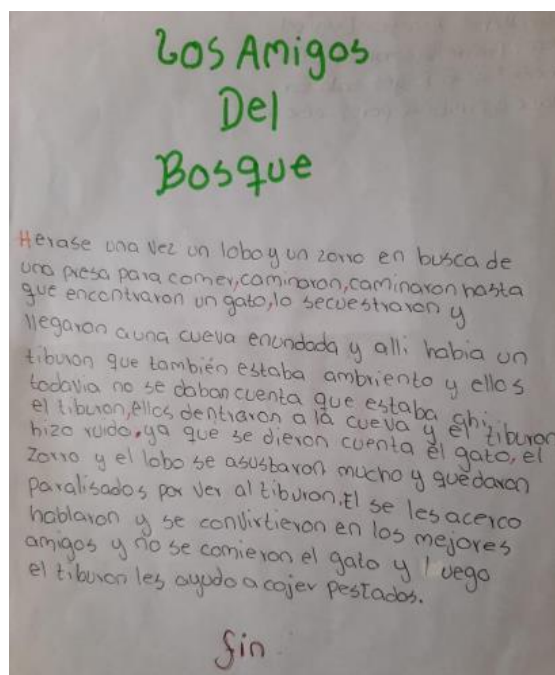 Los Amigos
Del
Bosque
Herase una vez un lobo y un zorro en busca de
una presa para comer, caminaron, caminaron hasta
que encontraron un gato, lo secuestraron y
llegaron auna cueva enundada y alli habia un
tiburon que también estaba ambriento y ellos
todavia no se daban cuenta que estaba ahi
el tiburon, ellos dentraron a la cueva y el tiburon
hizo ruido, ya que se dieron cuenta el gato, el
zorro y el lobo se asustaron mucho y quedaron
paralisados por ver al tiburon. El se les acerco
hablaron y se convirtieron en los mejores
amigos y no se comieron el gato y luego
el tiburon les ayudo a cojer pestados.
fin